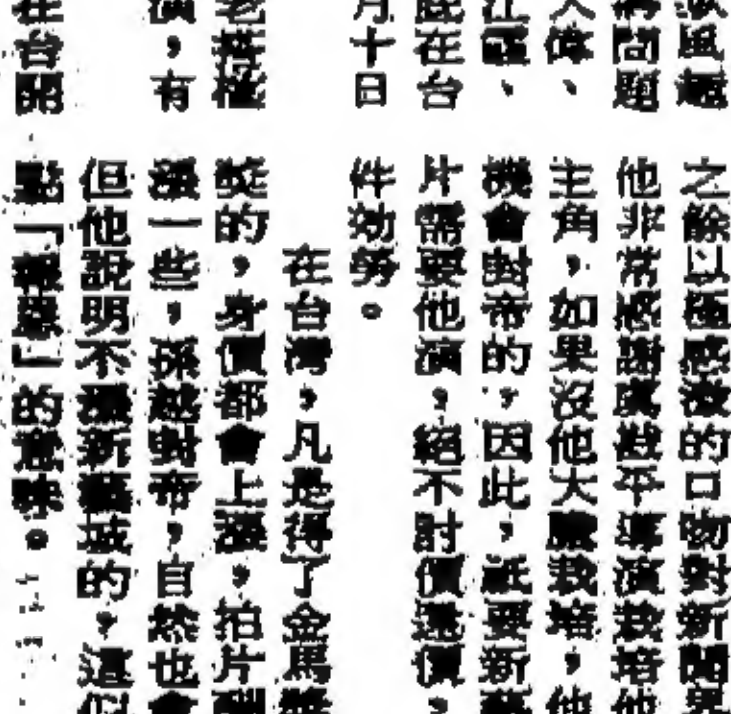 風趣
問題
大偉、
江霞、
底在台
月十日
老搭檔
演，有
在台開
之餘以極感激的口吻對新聞界
他非常感謝虞戡平導演栽培他
主角，如果沒他大膽栽培，他
機會封帝的，因此，祇要新藝
片需要他演，絕不討價還價，
件効勞。
在台灣，凡是得了金馬獎
獎的，身價都會上漲，拍片酬
漲一些，孫越封帝，自然也會
但他說明不漲新藝城的，這似
點「報恩」的意味。